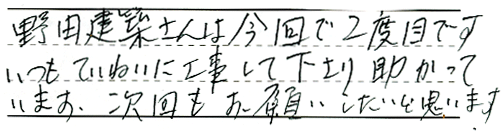 野田建築さんは今回で2度目です
いつもていねいに工事して下さり助かって
います。次回もお願いしたいと思います